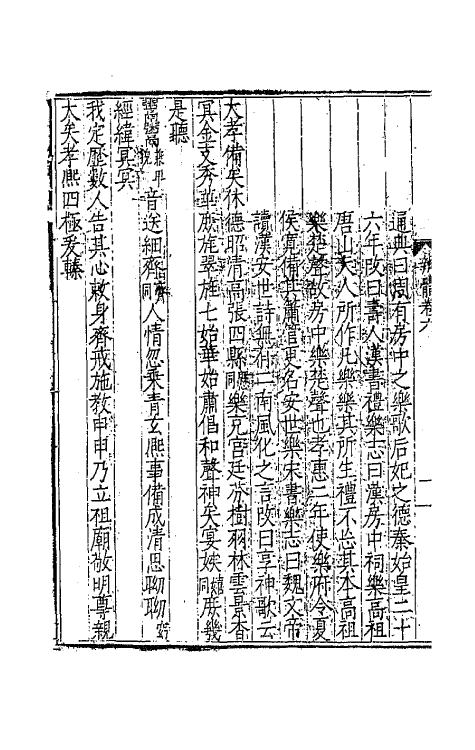 辨體卷六
通典曰周有房中之樂歌后妃之德秦始皇二十
六年改曰壽人漢書禮樂志曰漢房中祠樂高祖
唐山夫人所作凡樂樂其所生禮不忘其本高祖
樂楚聲故房中樂楚聲也孝惠二年使樂府令夏
侯寬備其簫管更名安世樂宋書樂志曰魏文帝
讀漢安世詩無有二南風化之言改曰享神歌云
大孝備矣休德昭清高張四縣樂充官廷芬樹羽林雲景杳
冥金支秀華庶旄翠旌七始華始肅倡和聲神矣宴娭庶幾
是聽
音送細齊人情忽乗青玄熈事備成清思聊聊
經緯冥冥
我定歴數人告其心敕身齊戒施教申申乃立祖廟敬明尊親
大矣孝熈四極爰轃